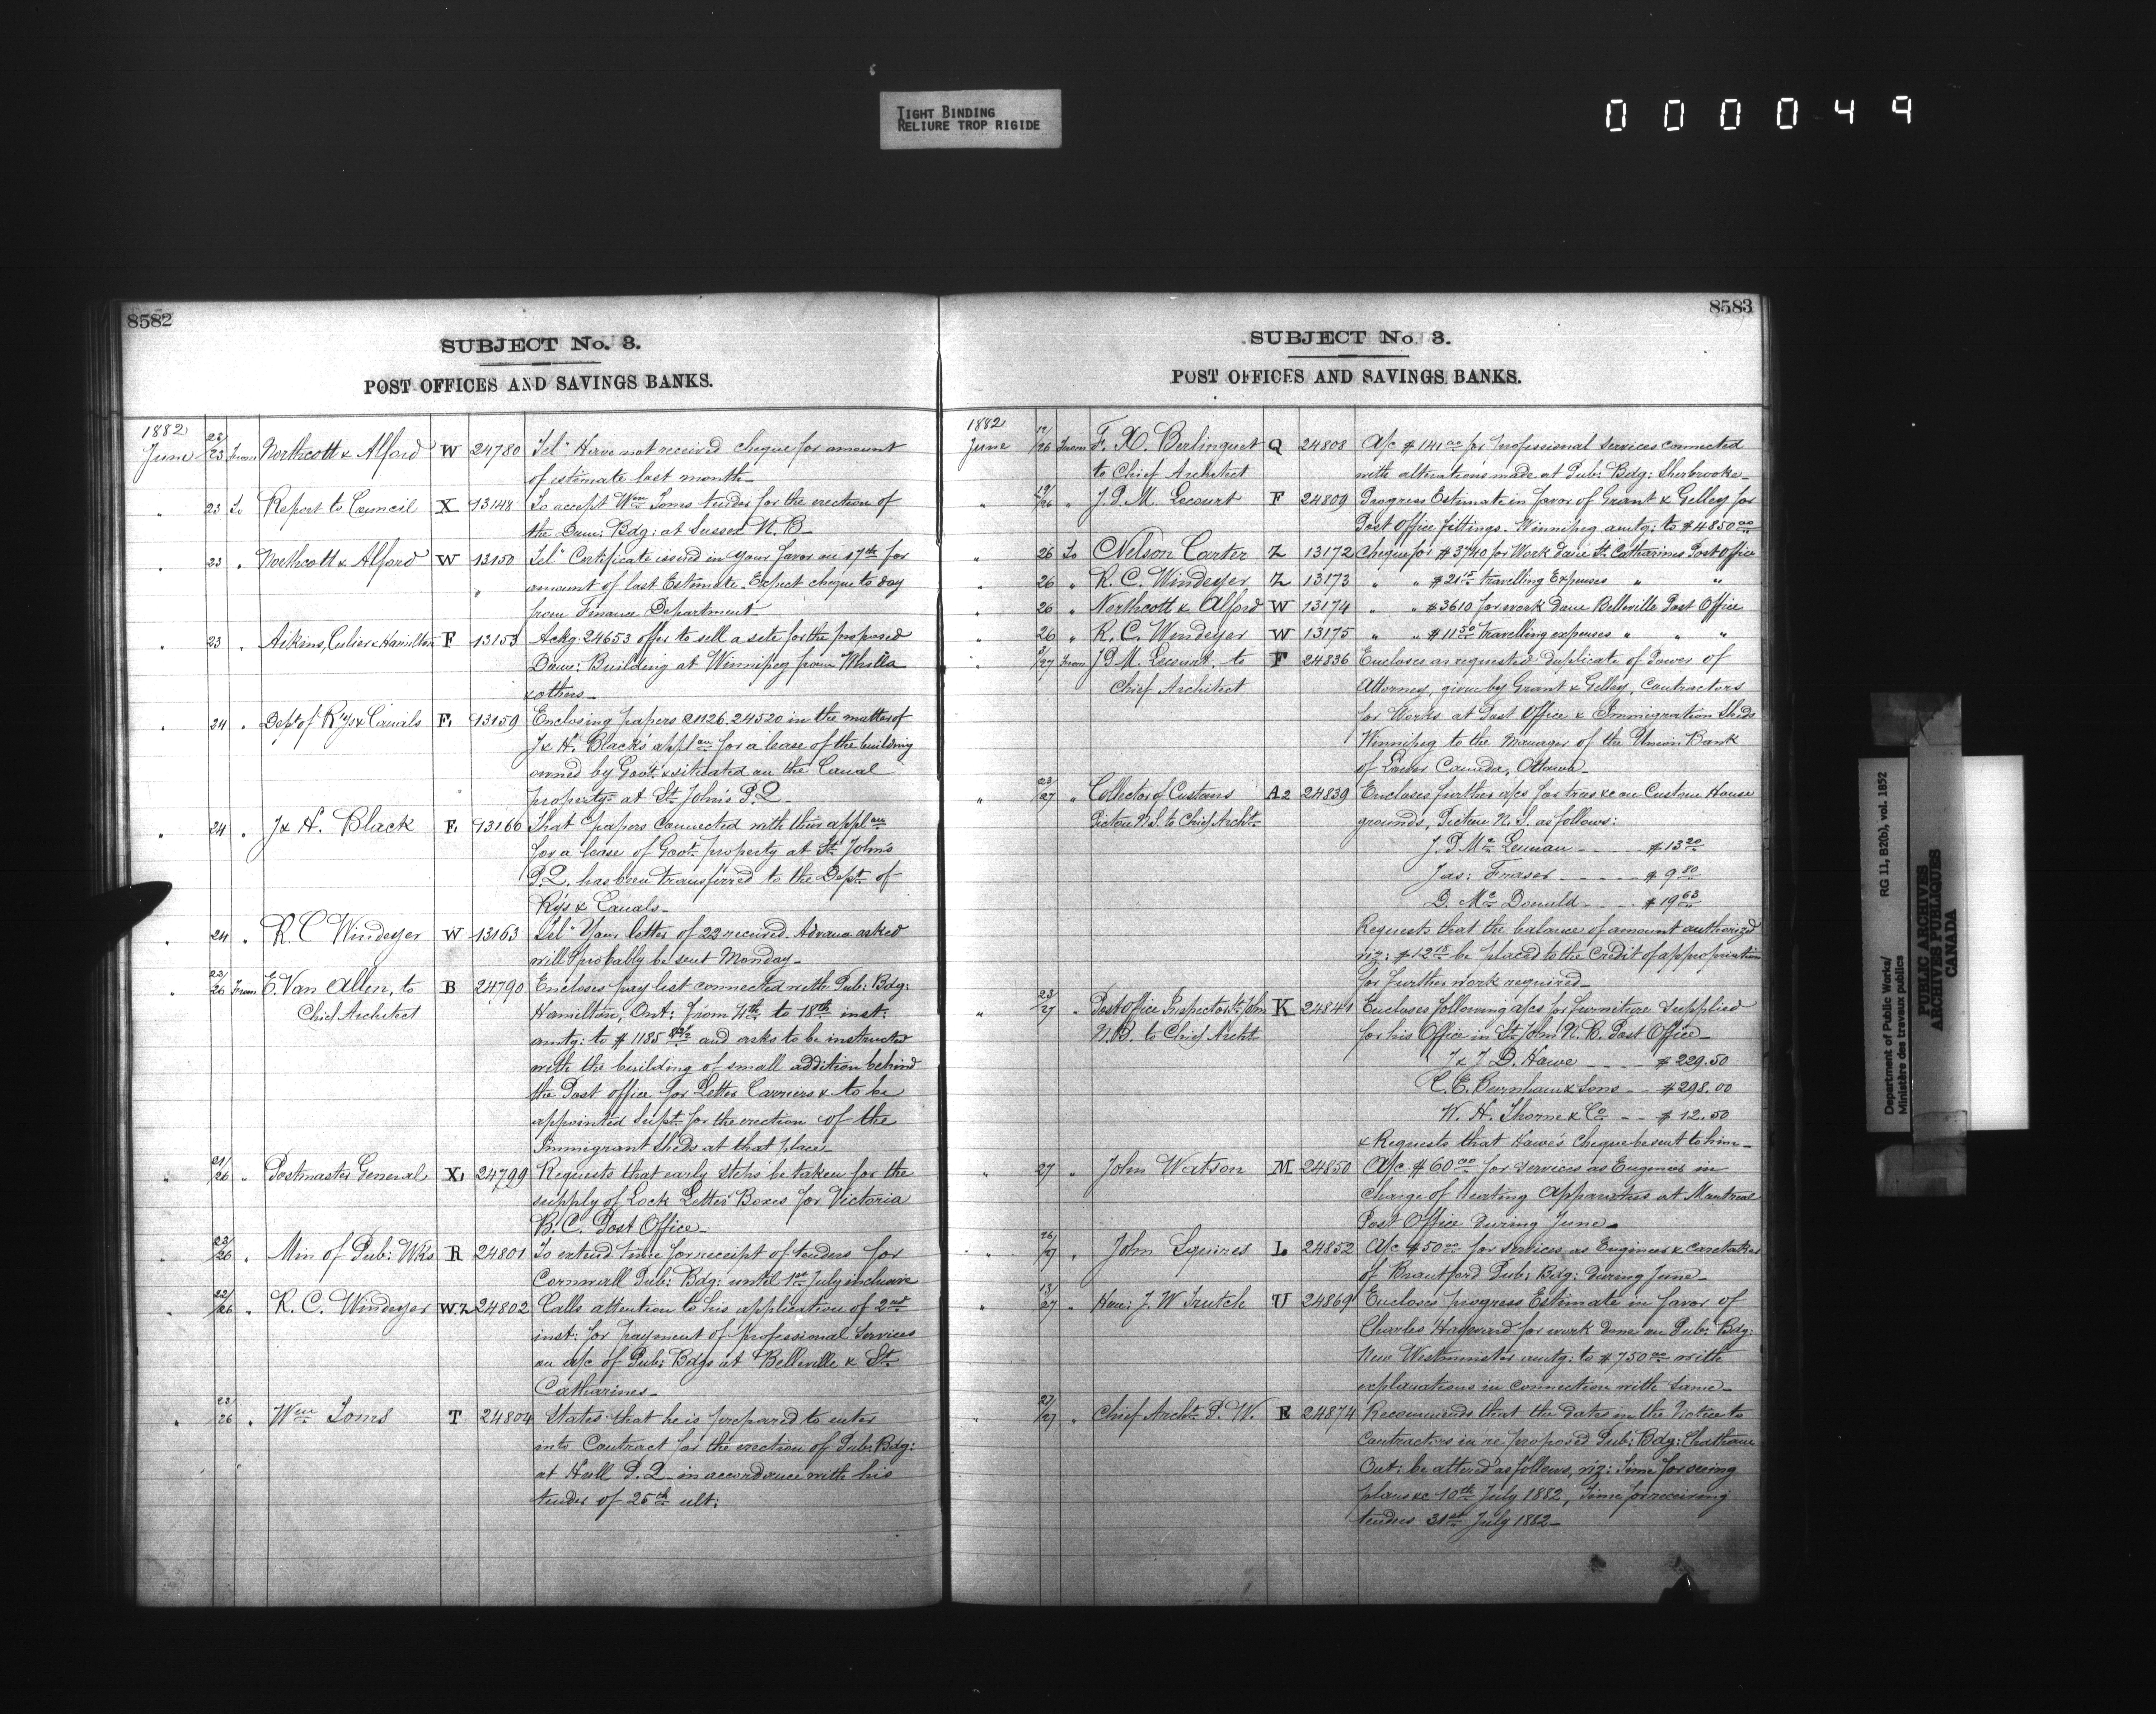 TIGHT BINDING
RELIURE TROP RIGIDE
0 0 0 0 4 9
8582
SUBJECT No. 3.
POST OFFICES AND SAVINGS BANKS.
1882
June 23/23 From Northcott & Alford W 24780 Telm Have not received cheque for amount
of estimate last month
" 23 To Report to Council X 13148 To accept Wm Toms tender for the erection of
the Dom: Bdg: at Sussex N.B.
" 23 " Northcott & Alford W 13150 Telm Certificate issued in your favor on 17th for
" amount of last Estimate. Expect cheque to day
from Finance Department
" 23 " Aikins, Culver & Hamilton F 13153 Ackg: 24653 offer to sell a site for the proposed
Dom: Building at Winnipeg from
& others
" 24 " Dept of Rys & Canals F, 13159 Enclosing papers 21126. 24520 in the matter of
J & H. Black's appln for a lease of the building
owned by Govt. & situated on the Canal
property at St. John's P.Q.
" 24 " J & H. Black F, 13166 That papers connected with their appln
for a lease of Govt. property at St. John's
P.Q. has been transferred to the Dept. of
Rys & Canals
" 24 " R. C Windeyer W 13163 Telm Your letter of 22 received. Advance asked
will probably be sent Monday
" 23/26 From E. Van Allen, to B 24790 Encloses pay list connected with Pub: Bdg:
Chief Architect Hamilton, Ont: from 4th to 18th inst:
amtg: to $1185 and asks to be instructed
with the building of small addition behind
the Post office for Letter Carriers & to be
appointed Supt. for the erection of the
Immigrant Sheds at that place
" 21/26 " Postmaster General X, 24799 Requests that early steps be taken for the
supply of Lock Letter Boxes for Victoria
B. C. Post Office
" 23/26 " Min of Pub: Wks R 24801 To extend time for receipt of tenders for
Cornwall Pub: Bdg: until 1st July inclusive
" 22/26 " R. C. Windeyer W.Z 24802 Calls attention to his application of 2nd
inst: for payment of professional services
on a/c of Pub: Bdgs at Belleville & St.
Catharines
" 22/26 " Wm Toms T 24804 States that he is prepared to enter
into Contract for the erection of Pub: Bdg:
at Hull P.Q. in accordance with his
tender of 25th ult:
8583
SUBJECT No. 3.
POST OFFICES AND SAVINGS BANKS.
1882
June /26 From F. X. Berlinguet Q 24808 A/c $141.00 for professional services connected
to Chief Architect with alterations made at Pub: Bdg: Sherbrooke
" 19/26 " J. P. M. Lecourt F 24809 Progress Estimate in favor of Grant & Gelley for
Post Office fittings. Winnipeg amtg: to $4850.00
" 26 To Nelson Carter Z 13172 Cheque for $3740 for Work done St. Catharines Post Office
" 26 " R. C. Windeyer Z 13173 " " $21.15 travelling Expenses " "
" 26 " Northcott & Alford W 13174 " " $3610 for work done Belleville Post Office
" 26 " R. C. Windeyer W 13175 " " $11.50 travelling expenses " " "
" /27 From J. P. M. Lecourt, to F 24836 Encloses as requested duplicate of Power of
Chief Architect Attorney, given by Grant & Gelley, Contractors
for Works at Post Office & Immigration Sheds
Winnipeg to the Manager of the Union Bank
of Lower Canada, Ottawa
" 23/27 " Collector of Customs A2 24839 Encloses further a/cs for trees &c on Custom House
Pictou N.S. to Chief Archt. grounds, Pictou N.S. as follows:
J. P Mc Lennan $13.20
Jas: Fraser $9.80
D. Mc Donald $19.63
Requests that the balance of amount authorized
viz: $12.18 be placed to the Credit of appropriation
for further work required
" 23/27 " Post Office Inspector St. John K 24841 Encloses following a/cs for furniture supplied
N.B. to Chief Archt. for his Office in St. John N.B. Post Office
J & J D. Howe $229.50
C. E. Burnham & Sons $298.00
W. H. Thorne & Co $12.50
& Requests that Howe's Cheque be sent to him
" 27 " John Watson M 24850 A/c $60.00 for services as Engineer in
Charge of Heating Apparatus at Montreal
Post Office during June
" 26/27 " John Squires L 24852 A/c $50.00 for services as Engineer & caretaker
of Brantford Pub: Bdg: during June
" 13/27 " Hon: J. W Trutch U 24869 Encloses progress Estimate in favor of
Charles Hayward for work done on Pub: Bdg:
New Westminster amtg: to $750.00 with
explanations in connection with same
" 27/27 " Chief Archt. P. W. E 24874 Recommends that the dates in the Notice to
Contractors in re proposed Pub: Bdg: Chatham
Ont: be altered as follows, viz: Time for seeing
plans &c 10th July 1882, Time for receiving
tenders 31st July 1882
Department of Public Works/ RG 11, B2(b), vol. 1852
Ministère des travaux publics
PUBLIC ARCHIVES
ARCHIVES PUBLIQUES
CANADA